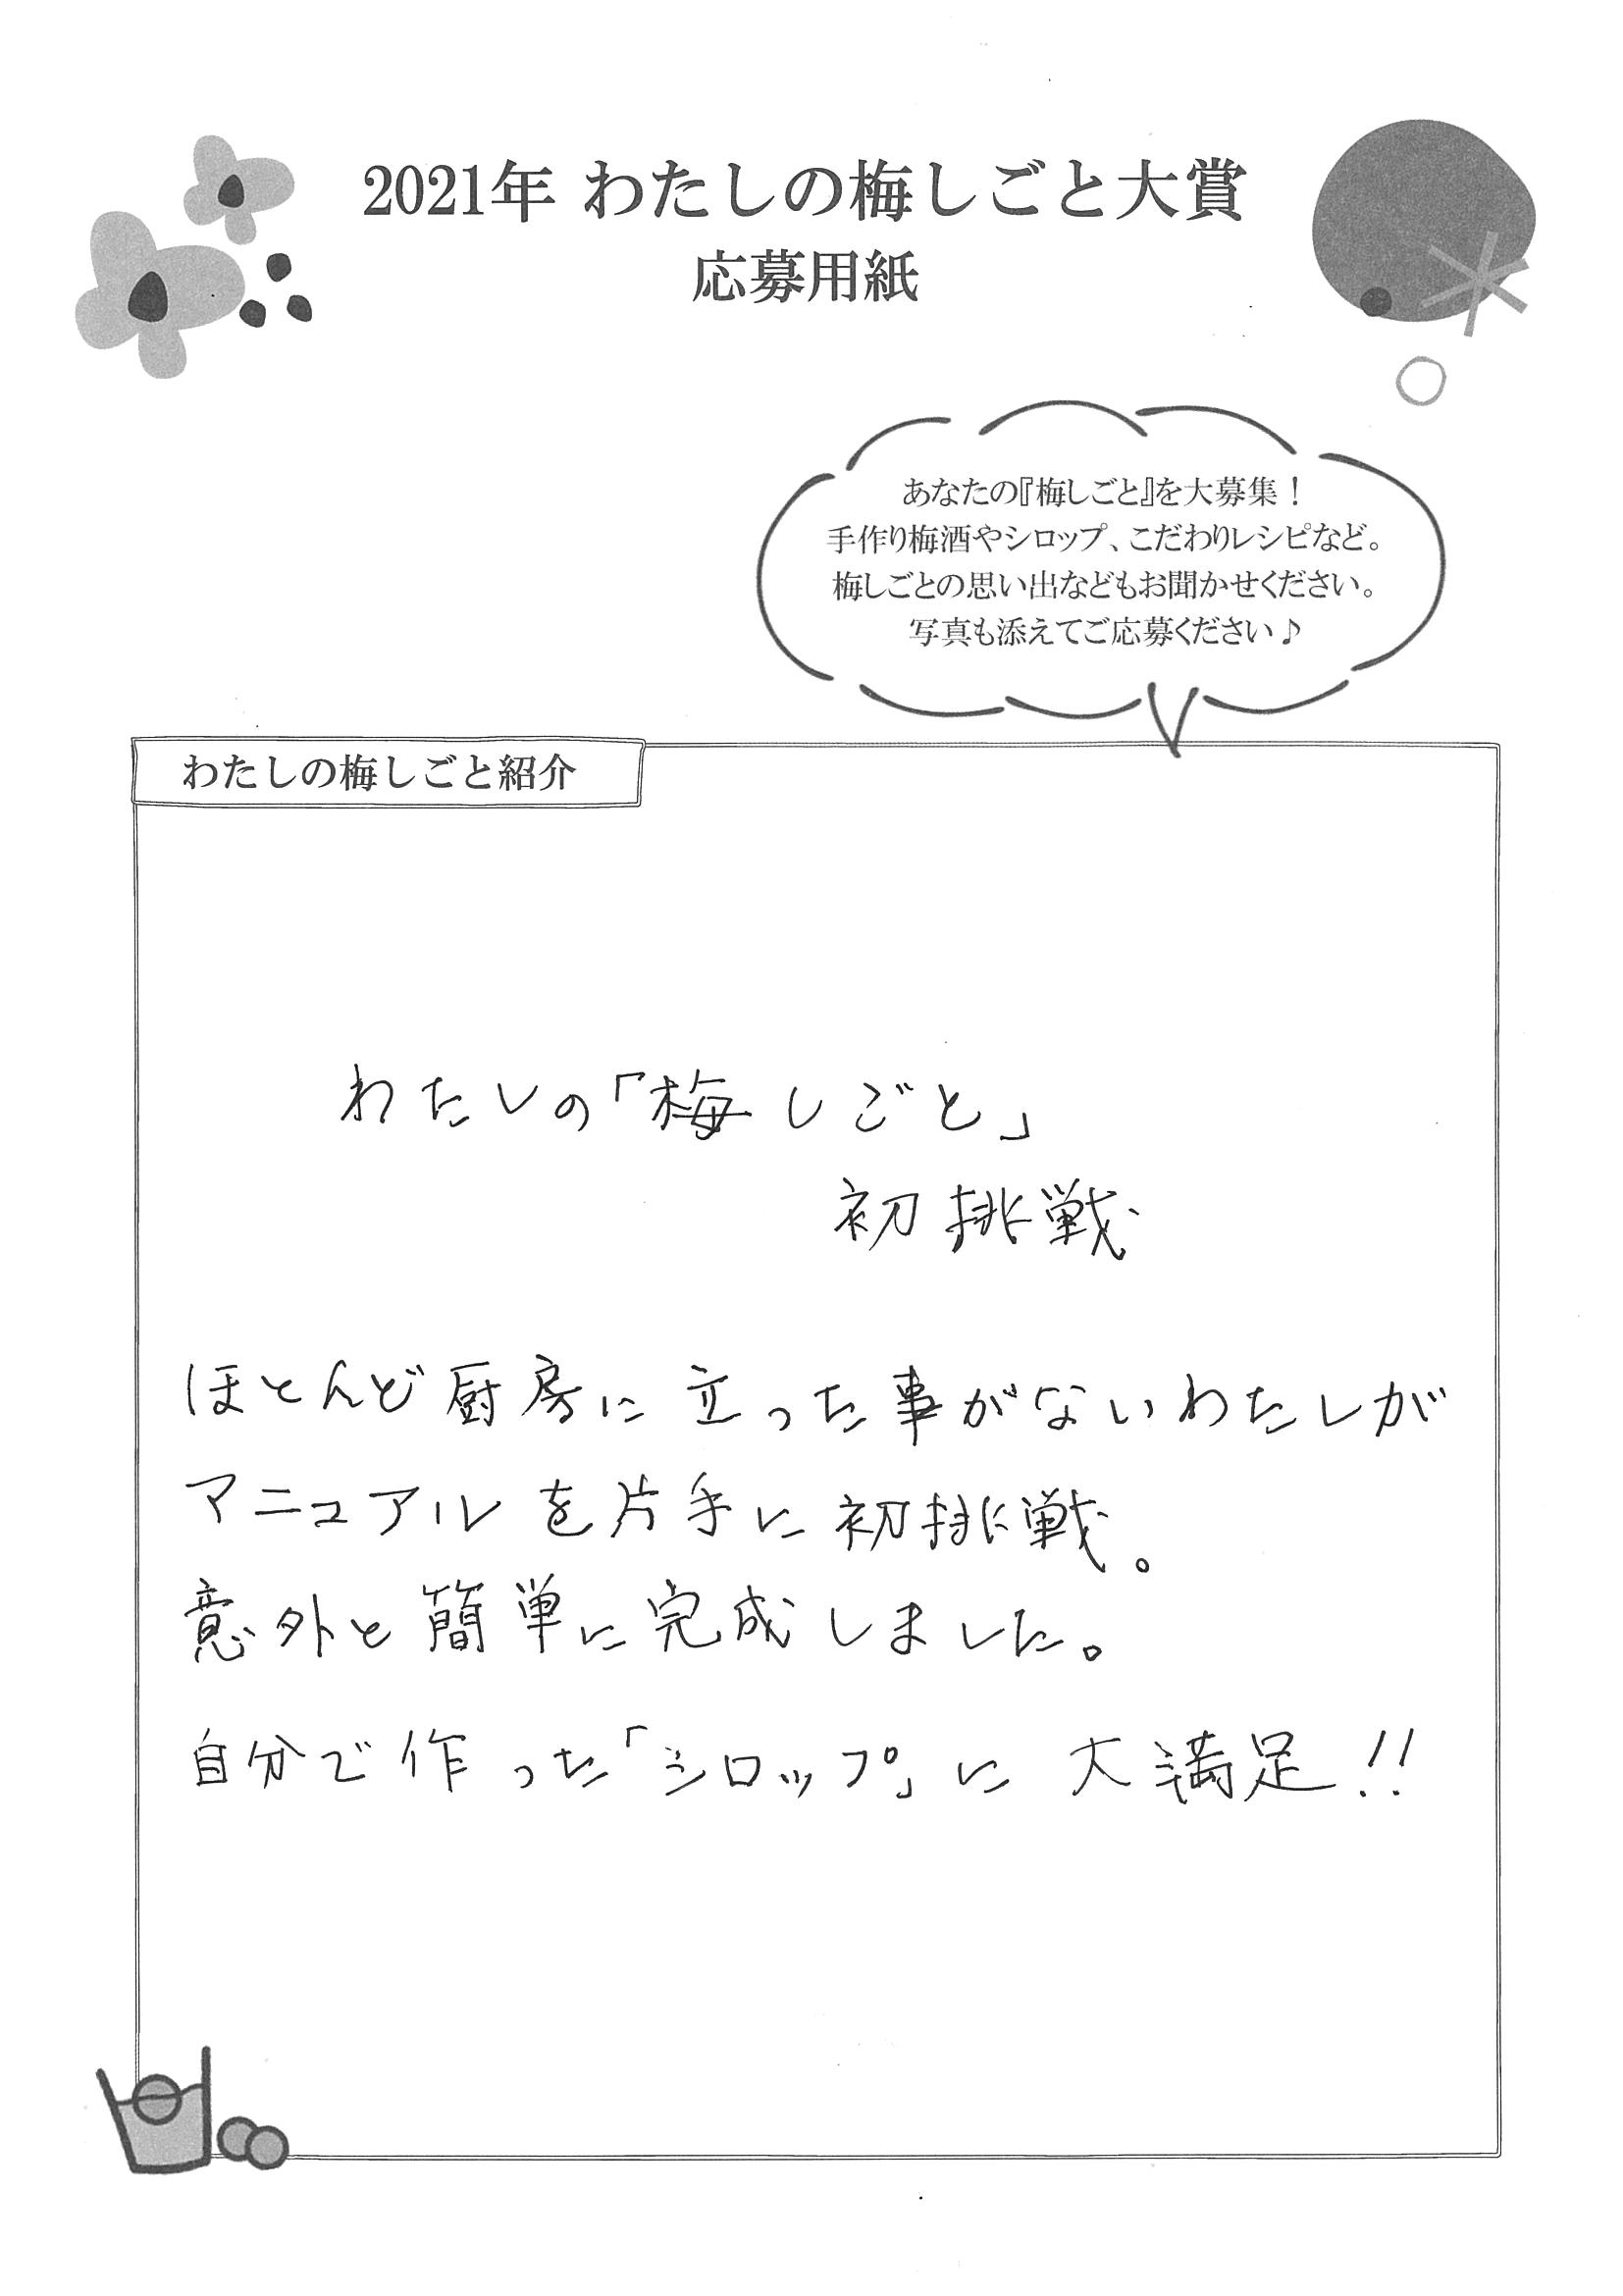 2021年 わたしの梅しごと大賞
応募用紙
あなたの『梅しごと』を大募集！
手作り梅酒やシロップ、こだわりレシピなど。
梅しごとの思い出などもお聞かせください。
写真も添えてご応募ください♪
わたしの梅しごと紹介
わたしの「梅しごと」
初挑戦
ほとんど厨房に立った事がないわたしが
マニュアルを片手に初挑戦。
意外と簡単に完成しました。
自分で作った「シロップ」に大満足!!